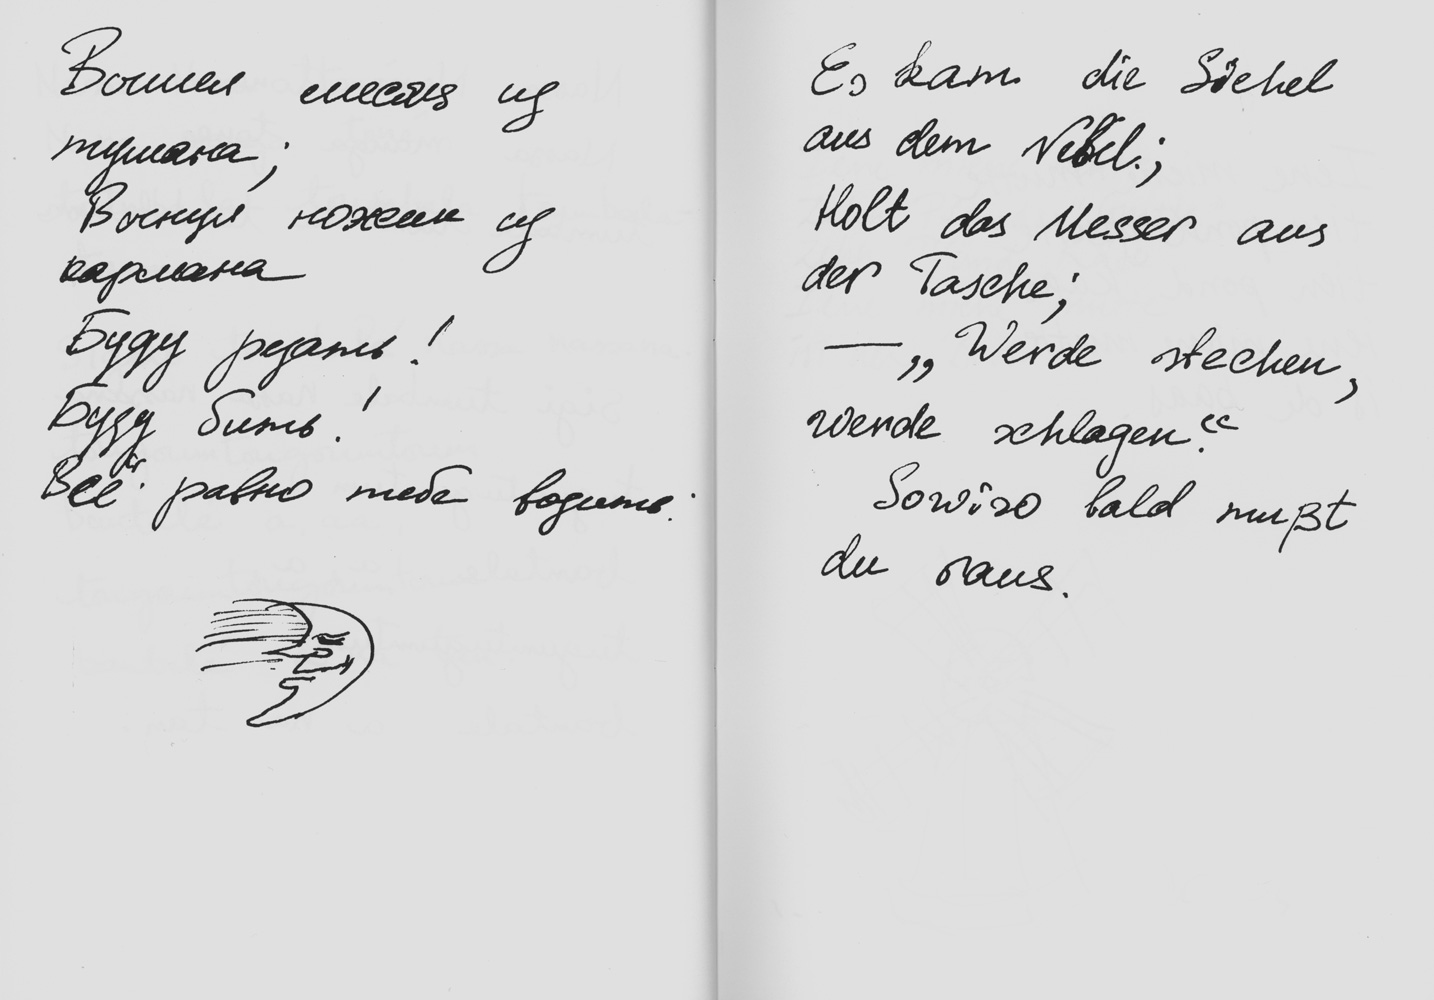 Вышел месяц из
тумана;
Вынул ножик из
кармана
Буду резать!
Буду бить!
Всё равно тебе водить.
Es kam die Sichel
aus dem Nebel;
Holt das Messer aus
der Tasche;
—„Werde stechen,
werde schlagen.“
Sowiso bald mußt
du raus.